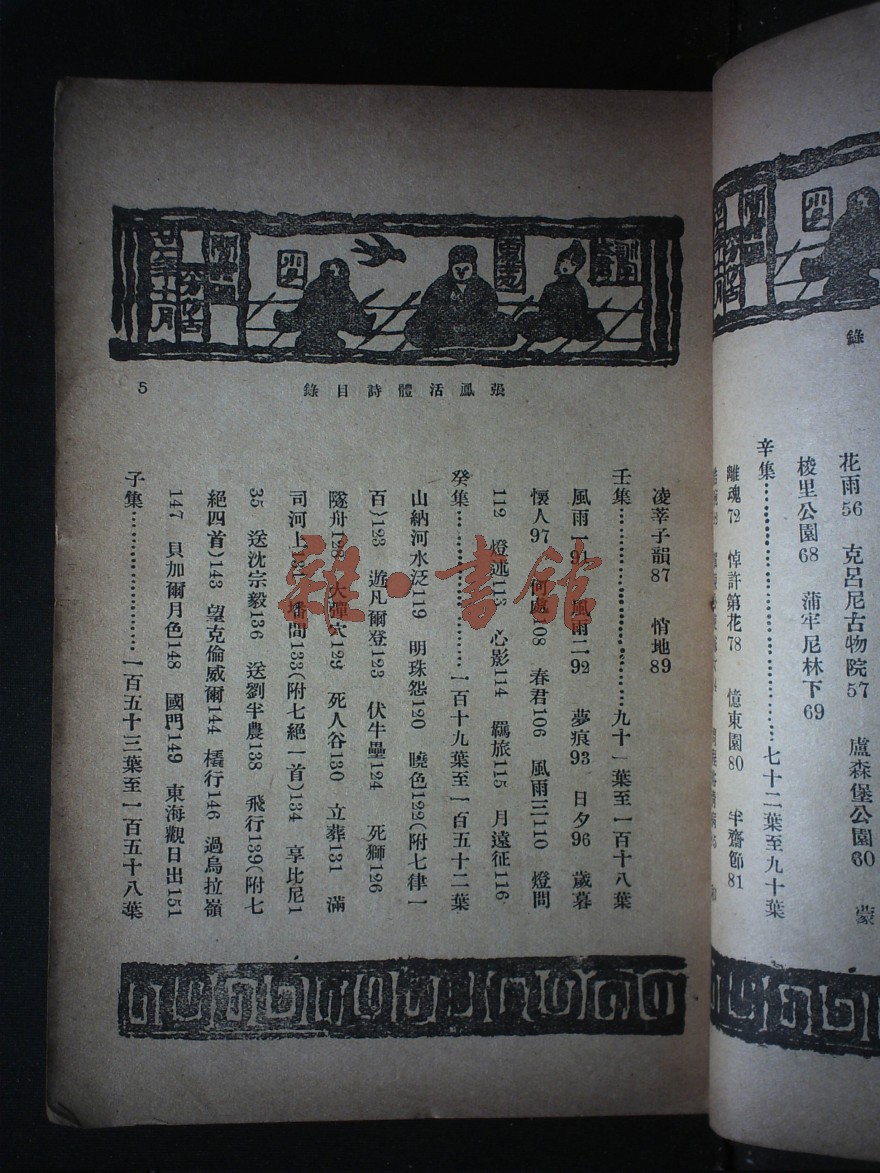 錄
花雨56　克呂尼古物院57　盧森堡公園60　蒙
梭里公園68　蒲牢尼林下69
辛集……………………七十二葉至九十葉
離魂72　悼許第花78　憶東園80　半齋節81
張鳳活體詩目錄
5
凌莘子韻87　悄地89
壬集……………………九十一葉至一百十八葉
風雨一91　風雨二92　夢痕93　日夕96　歲暮
懷人97　何處108　春君106　風雨三110　燈間
112　燈述113　心影114　羈旅115　月遠征116
癸集……………………一百十九葉至一百五十二葉
山納河水泛119　明珠怨120　曉色122(附七律一
百)123　遊凡爾登123　伏牛壘124　死獅126
隧舟128　大彈穴129　死人谷130　立葬131　滿
司河上　播間133(附七絕一首)134　享比尼1
35　送沈宗毅136　送劉半農138　飛行139(附七
絕四首)143　望克倫威爾144　橇行146　過烏拉嶺
147　貝加爾月色148　國門149　東海觀日出151
子集……………………一百五十三葉至一百五十八葉
雜·書館